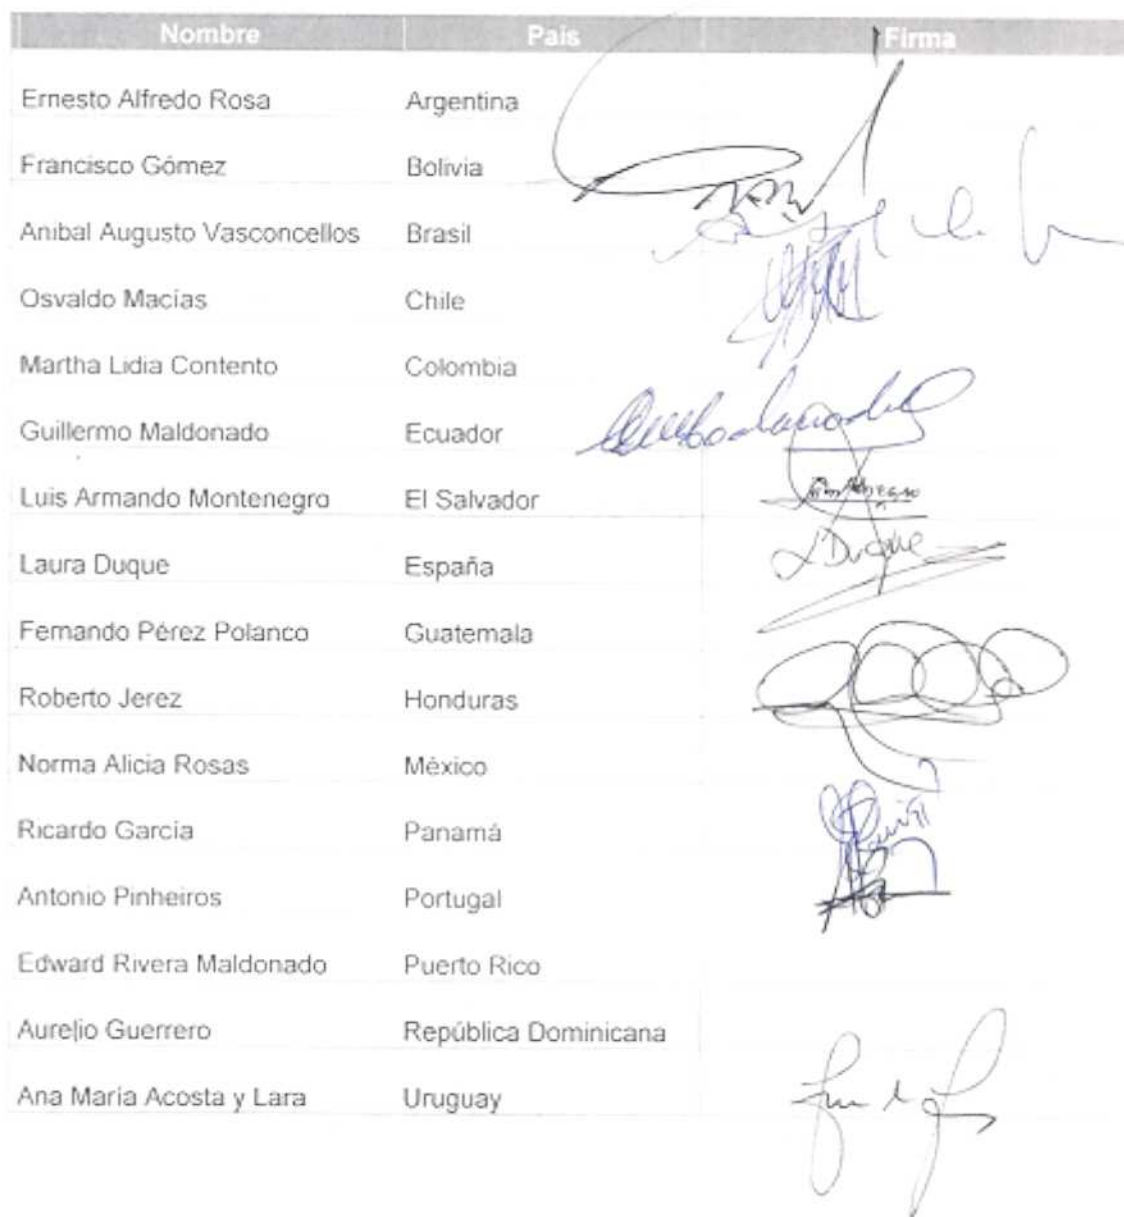 Nombre País Firma
Ernesto Alfredo Rosa Argentina
Francisco Gómez Bolivia
Anibal Augusto Vasconcellos Brasil
Osvaldo Macías Chile
Martha Lidia Contento Colombia
Guillermo Maldonado Ecuador
Luis Armando Montenegro El Salvador
Laura Duque España
LDuque
Fernando Pérez Polanco Guatemala
Roberto Jerez Honduras
Norma Alicia Rosas México
Ricardo García Panamá
Antonio Pinheiros Portugal
Edward Rivera Maldonado Puerto Rico
Aurelio Guerrero República Dominicana
Ana María Acosta y Lara Uruguay